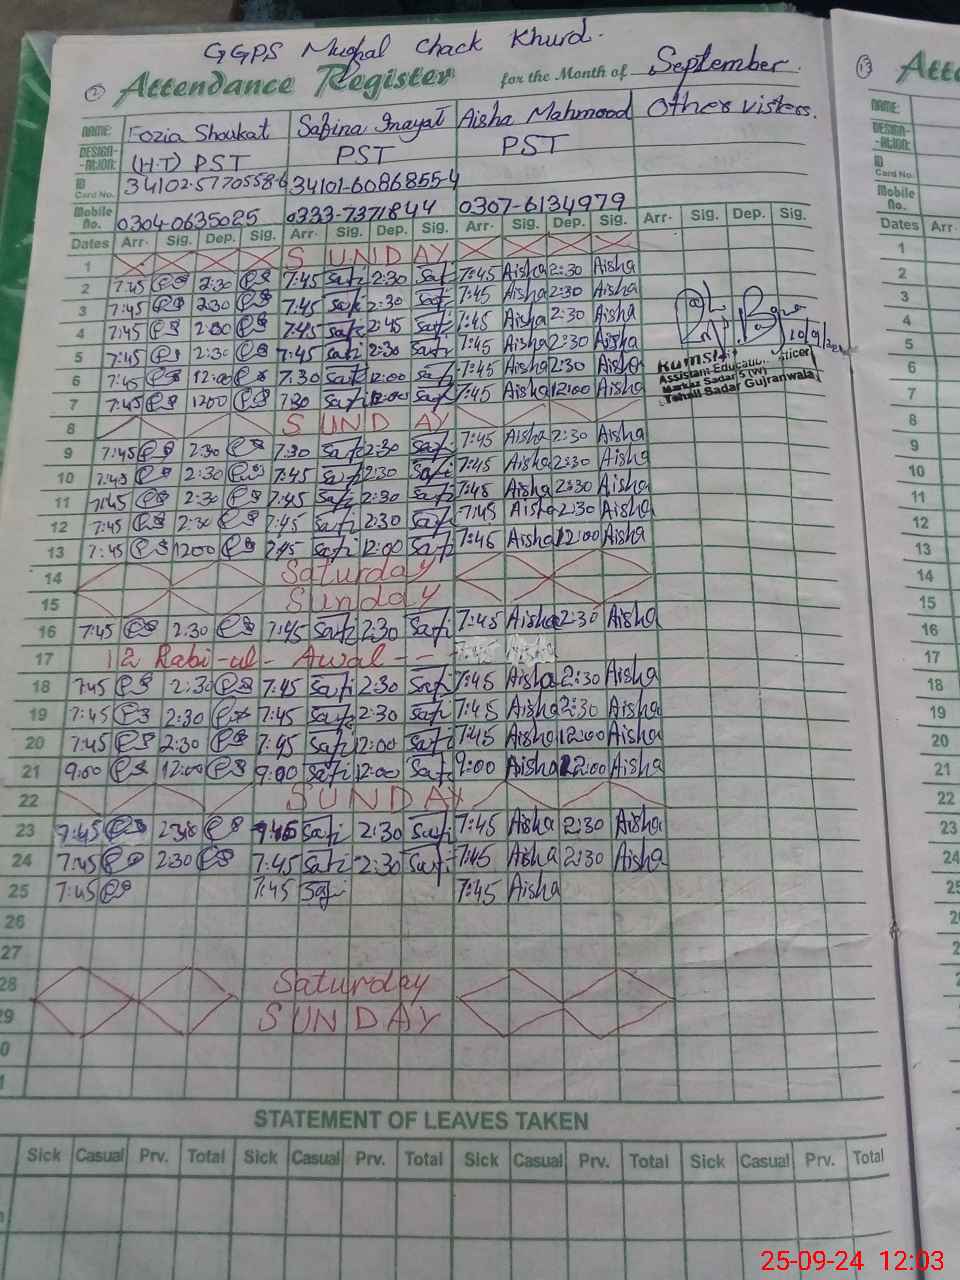 GGPS Mughal Chack Khurd.
2 Attendance Register for the Month of September.
NAME: Fozia Shoukat Sabina Inayat Aisha Mahmood Other visters.
DESIGN-ATION: (H.T) PST PST PST
ID Card No. 34102-5770558-6 34101-6086855-4
Mobile No. 0304-0635025 0333-7371844 0307-6134979
Dates Arr. Sig. Dep. Sig. Arr. Sig. Dep. Sig. Arr. Sig. Dep. Sig. Arr. Sig. Dep. Sig.
1 SUNDAY
2 7:45 2:30 7:45 Safi 2:30 Safi 7:45 Aisha 2:30 Aisha
3 7:45 2:30 7:45 Safi 2:30 Safi 7:45 Aisha 2:30 Aisha
4 7:45 2:00 7:45 Safi 2:45 Safi 7:45 Aisha 2:30 Aisha
5 7:45 2:30 7:45 Safi 2:30 Safi 7:45 Aisha 2:30 Aisha
6 7:45 12:00 7:30 Safi 12:00 Safi 7:45 Aisha 2:30 Aisha
7 7:45 1200 7:30 Safi 12:00 Safi 7:45 Aisha 12:00 Aisha
Assistant Education Officer
Markaz Sadar S (W)
Tehsil Sadar Gujranwala
8 SUNDAY
9 7:45 2:30 7:30 Safi 2:30 Safi 7:45 Aisha 2:30 Aisha
10 7:45 2:30 7:45 Safi 2:30 Safi 7:45 Aisha 2:30 Aisha
11 7:45 2:30 7:45 Safi 2:30 Safi 7:45 Aisha 2:30 Aisha
12 7:45 2:30 7:45 Safi 2:30 Safi 7:45 Aisha 2:30 Aisha
13 7:45 1200 7:45 Safi 12:00 Safi 7:45 Aisha 12:00 Aisha
14 Saturday
15 Sunday
16 7:45 2:30 7:45 Safi 2:30 Safi 7:45 Aisha 2:30 Aisha
17 12 Rabi-ul-Awal - - -
18 7:45 2:30 7:45 Safi 2:30 Safi 7:45 Aisha 2:30 Aisha
19 7:45 2:30 7:45 Safi 2:30 Safi 7:45 Aisha 2:30 Aisha
20 7:45 2:30 7:45 Safi 12:00 Safi 7:45 Aisha 12:00 Aisha
21 9:00 12:00 9:00 Safi 12:00 Safi 9:00 Aisha 12:00 Aisha
22 SUNDAY
23 7:45 2:30 7:45 Safi 2:30 Safi 7:45 Aisha 2:30 Aisha
24 7:45 2:30 7:45 Safi 2:30 Safi 7:45 Aisha 2:30 Aisha
25 7:45 7:45 Safi 7:45 Aisha
26
27
28 Saturday
29 SUNDAY
STATEMENT OF LEAVES TAKEN
Sick Casual Prv. Total Sick Casual Prv. Total Sick Casual Prv. Total Sick Casual Prv. Total
13 Atte
NAME:
DESIGN-ATION:
ID Card No.
Mobile No.
Dates Arr.
1
2
3
4
5
6
7
8
9
10
11
12
13
14
15
16
17
18
19
20
21
22
23
24
25
25-09-24 12:03